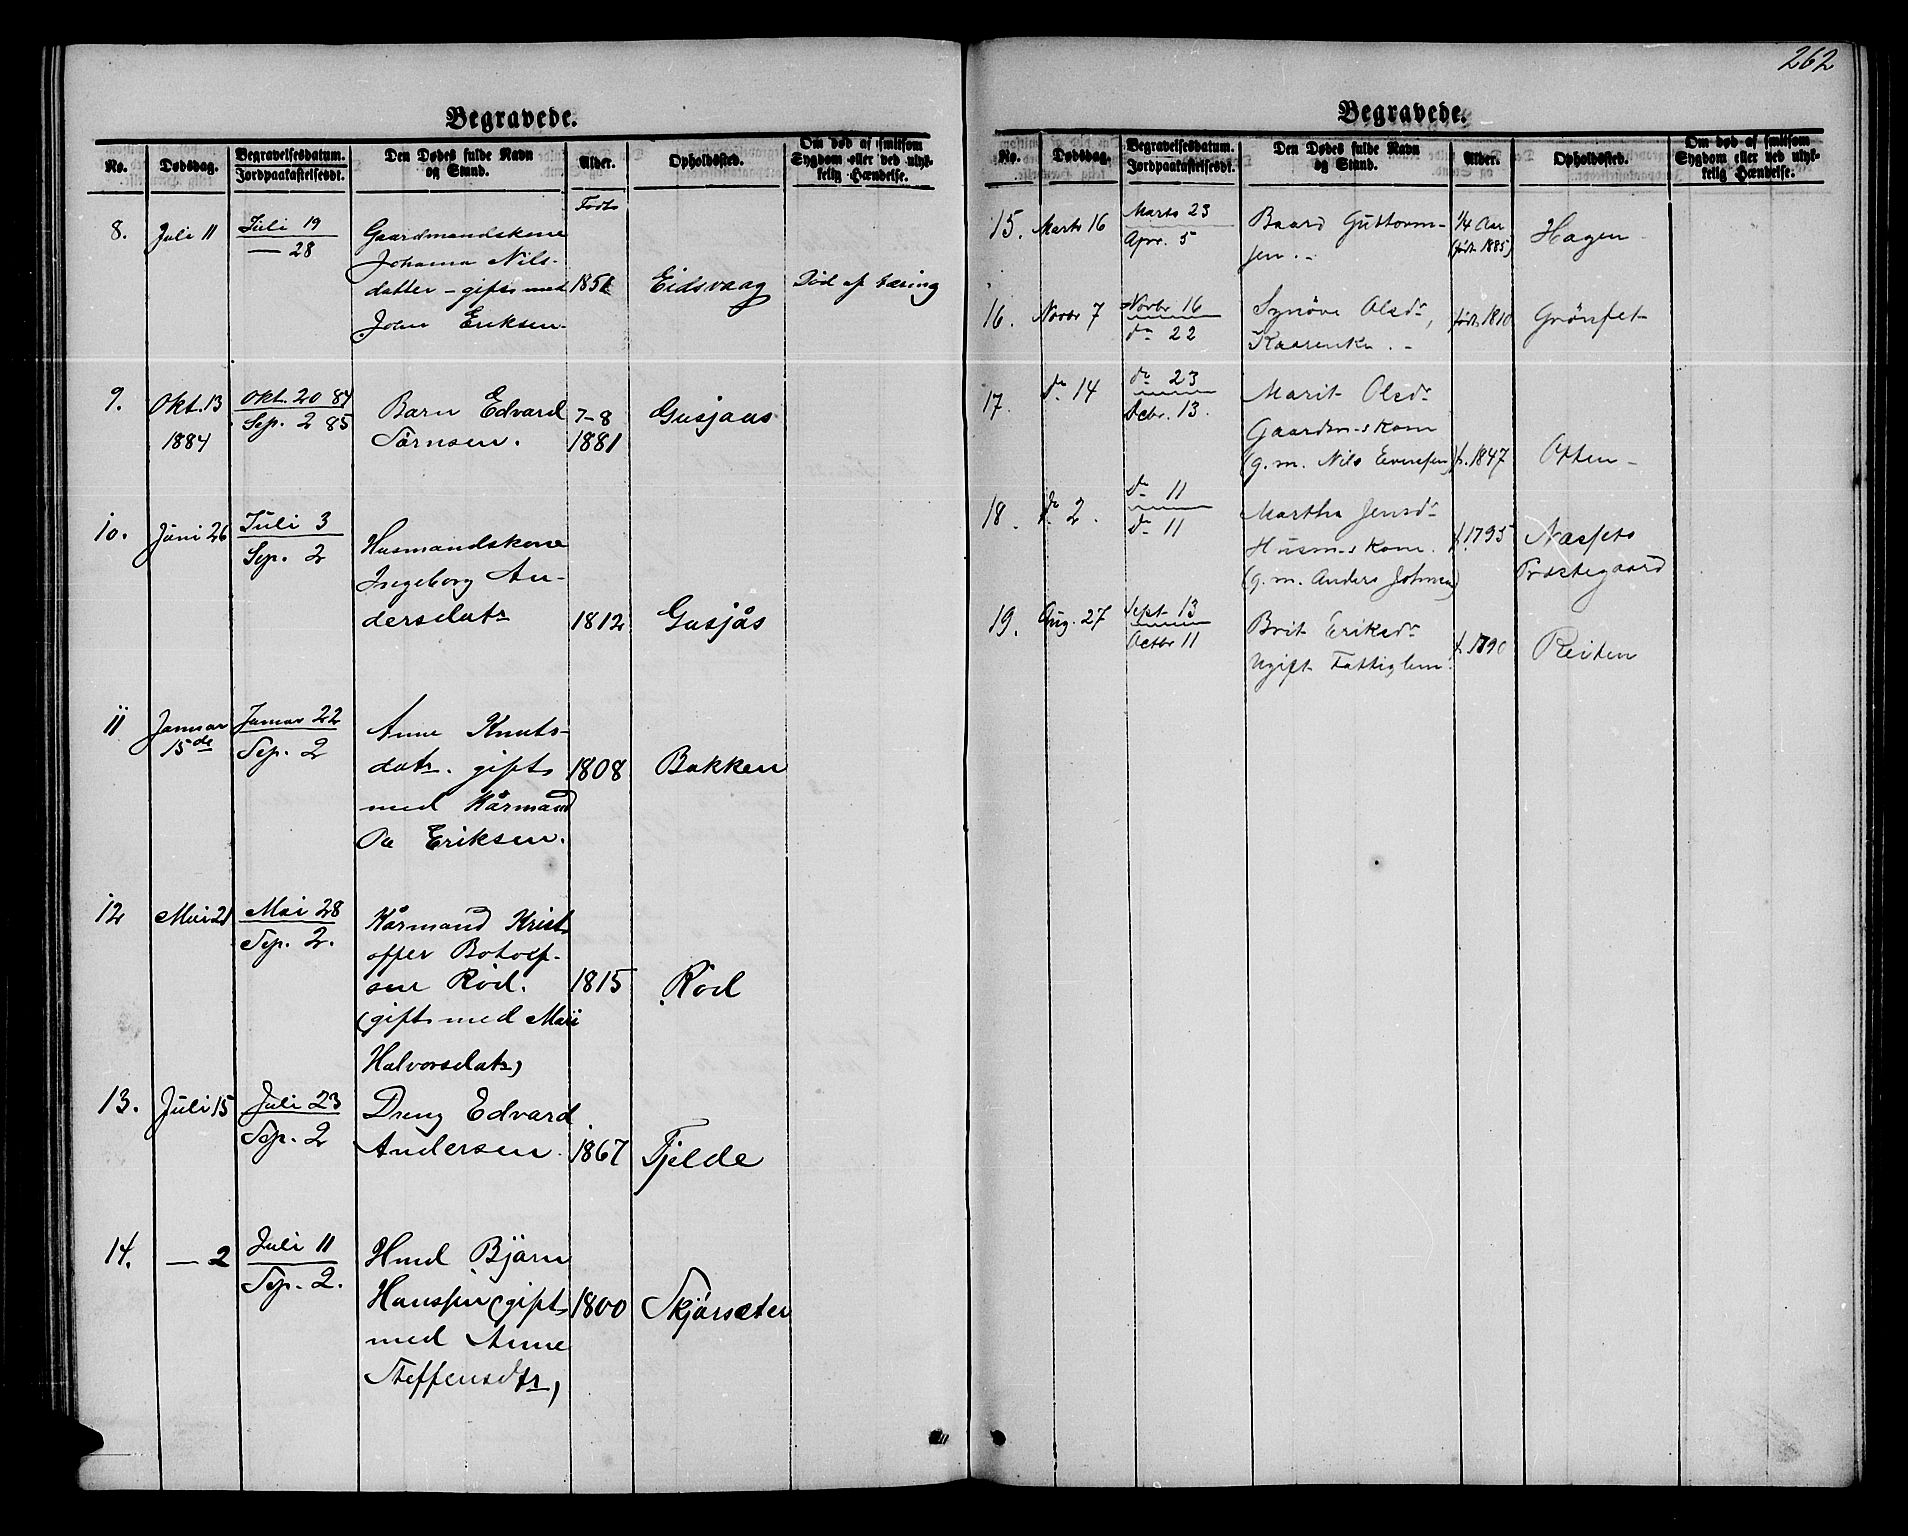 Begravede.
No. Dødsdag. Begravelsesdatum. Jordpaakastelsesdt. Den Dødes fulde Navn og Stand. Alder. Opholdssted. Om død af smitsom Sygdom eller ved ulykkelig Hændelse.
Født
8. Juli 11 Juli 19 Gaardmandskone
— 28 Johanna Nils-
datter – gift med 1851 Eidsvaag Død af tæring
John Eriksen.
9. Okt. 13 Okt. 20 84 Barn Edvard 7-8 Gusjaas
1884 Sep. 2 85 Sørnsen. 1881
10. Juni 26 Juli 3
Sep. 2 Husmandskone
Ingeborg An-
dersdatr 1812 Gusjås
11 Januar Januar 22 Anne Knuts-
15de Sep. 2 datr. gift 1808 Bakken
med Kårmand
Ole Eriksen.
12 Mai 21 Mai 28 Kårmand Krist
Sep. 2. offer Botolf-
sen Röd. 1815 Röd
(gift med Mari
Halvorsdatr)
13. Juli 15 Juli 23 Dreng Edvard
Sep. 2 Andersen. 1867 Fjelde
14. — 2 Juli 11 Hmd Björn
Sep. 2. Hanssen (gift 1800 Skjörsæter
med Anne
Steffensdtr)
262
Begravede.
No. Dødsdag. Begravelsesdatum. Jordpaakastelsesdt. Den Dødes fulde Navn og Stand. Alder. Opholdssted. Om død af smitsom Sygdom eller ved ulykkelig Hændelse.
15. Marts 16 Marts 23 Baard Guttorm- 1/4 Aar Hagen
Apr. 5 sen. (født 1885)
16. Novbr 7 Novbr 16 Synöve Olsdr, født 1810 Grönset
do 22 Kaarenke.
17. do 14 do 23 Marit Olsdr
Decbr. 13. Gaardm-skone
(g. m. Nils Evensen) f. 1847 Otten
18. do 2. do 11 Martha Jensdr
do 11 Husm-skone. f. 1795 Næssets
(g. m. Anders Johnsen) Præstegaard
19. Aug. 27 Sept 13 Brit Eriksdr
Octbr 11 Ugift Fattiglem. f. 1790 Reiten